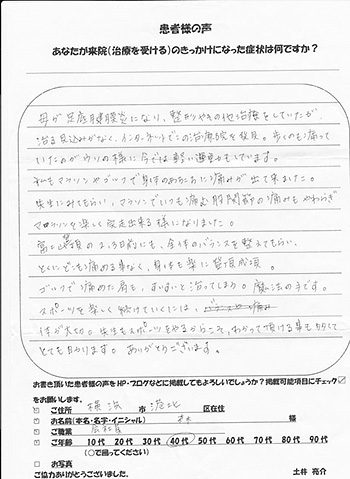 患者様の声
あなたが来院(治療を受ける)のきっかけになった症状は何ですか?
母が足底腱膜炎になり、整形やその他治療をしていたが
治る見込みがなく、インターネットでこの治療院を発見。歩くのも痛って
いたのがウソの様に今では軽い運動もしています。
私もマラソンやゴルフで身体のあちこちに痛みが出て来ました。
先生にみてもらい、マラソンでいつも痛む股関節の痛みもやわらぎ
マラソンを楽しく完走出来る様になりました。
富士登頂の2、3日前にも、全体のバランスを整えてもらい、
とくにどこも痛める事なく、身体も楽に登頂成功。
ゴルフで痛めた肩も、すいすいと治ってしまう。魔法の手です。
スポーツを楽しく続けていくには、
体が大切。先生もスポーツをやるからこそ、わかって頂ける事も多くて
とても助かります。ありがとうございます。
お書き頂いた患者様の声をHP・ブログなどに掲載してもよろしいでしょうか?掲載可能項目にチェック
をお願いします。
ご住所 横浜 市 港北 区在住
お名前(本名・名字・イニシャル) 様
ご職業 会社員
ご年齢 10代 20代 30代 40代 50代 60代 70代 80代 90代
(○で囲ってください)
お写真
ご協力ありがとうございました。 土井 亮介